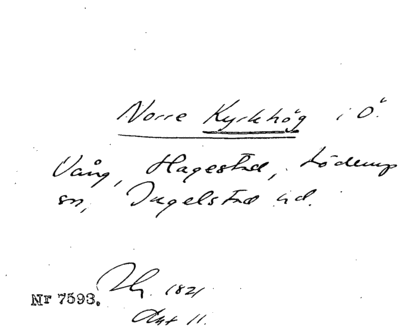 Norre Kyrkhög i Ö.
Vång, Hagestad, Löderup
sn, Ingelstad hd.
Nr 7593. 1821
Akt 11.